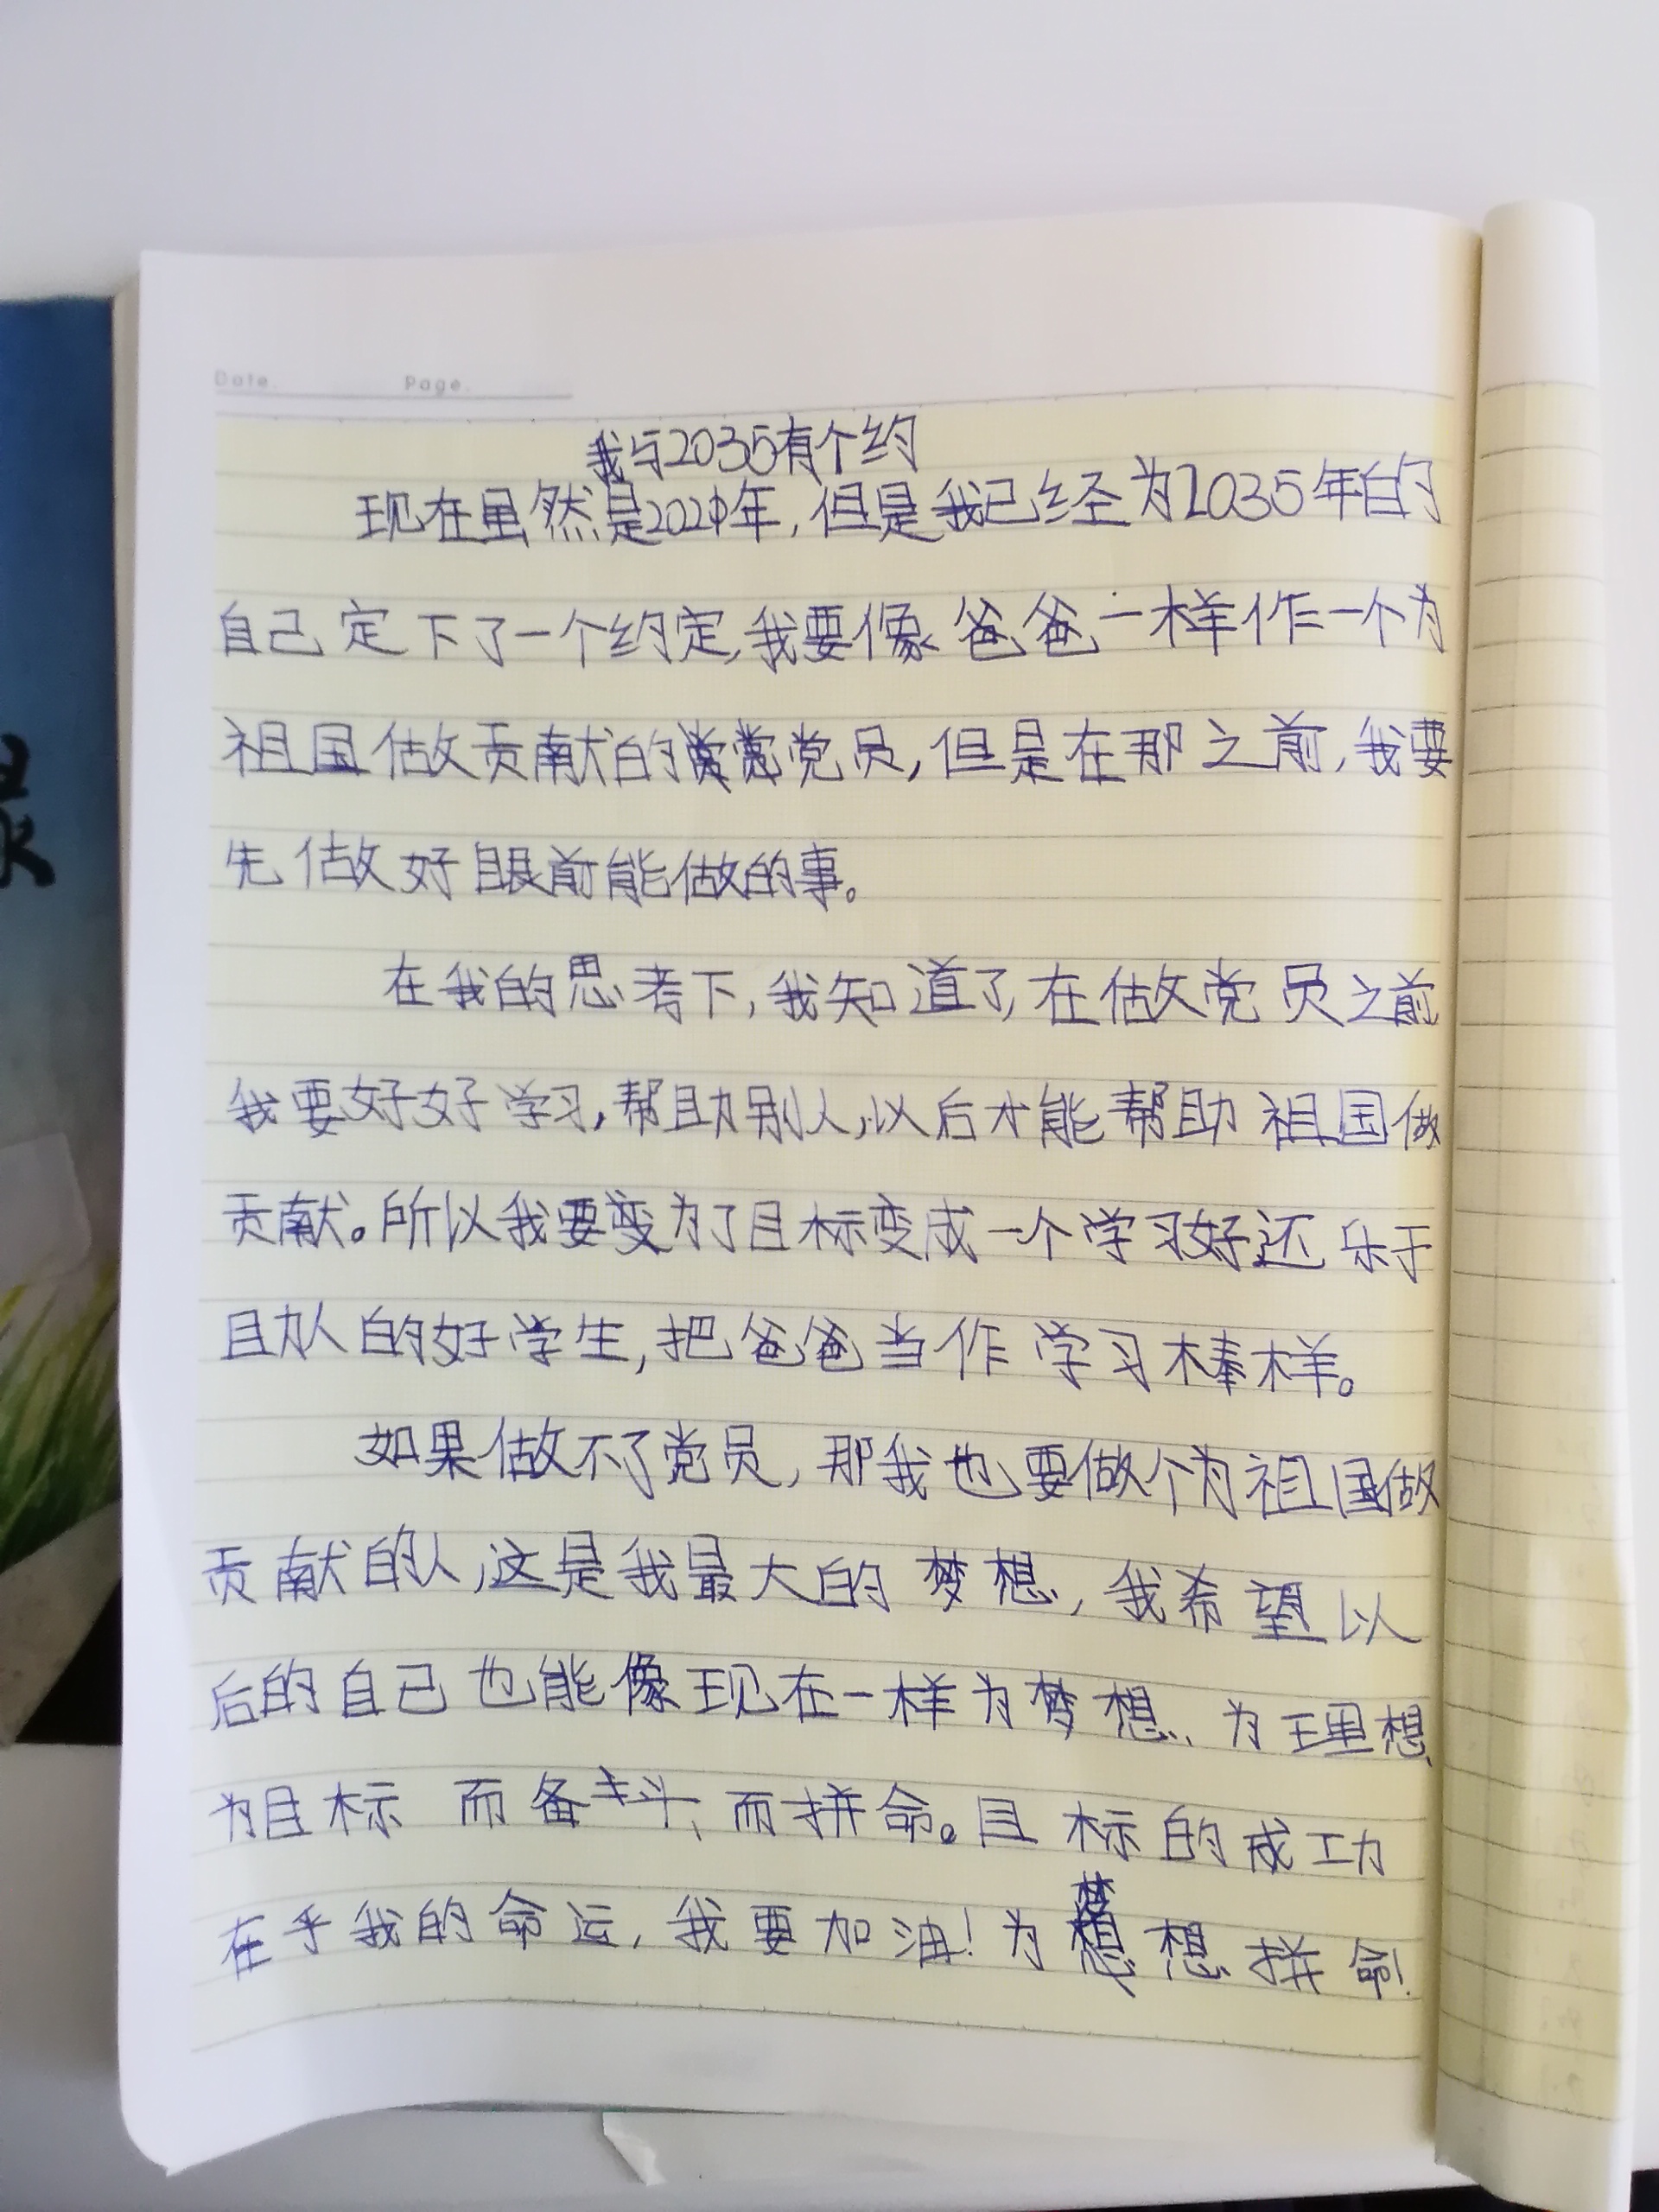 Date. Page.
我与2035有个约
现在虽然是2021年,但是我已经为2035年的
自己定下了一个约定,我要像爸爸一样作一个为
祖国做贡献的党员,但是在那之前,我要
先做好眼前能做的事。
在我的思考下,我知道了,在做党员之前
我要好好学习,帮助别人,以后才能帮助祖国做
贡献。所以我要为了目标变成一个学习好还乐于
助人的好学生,把爸爸当作学习棒样。
如果做不了党员,那我也要做个为祖国做
贡献的人,这是我最大的梦想,我希望以
后的自己也能像现在一样为梦想、为理想、
为目标而备斗、而拼命。目标的成功
在乎我的命运,我要加油!为梦想拼命!